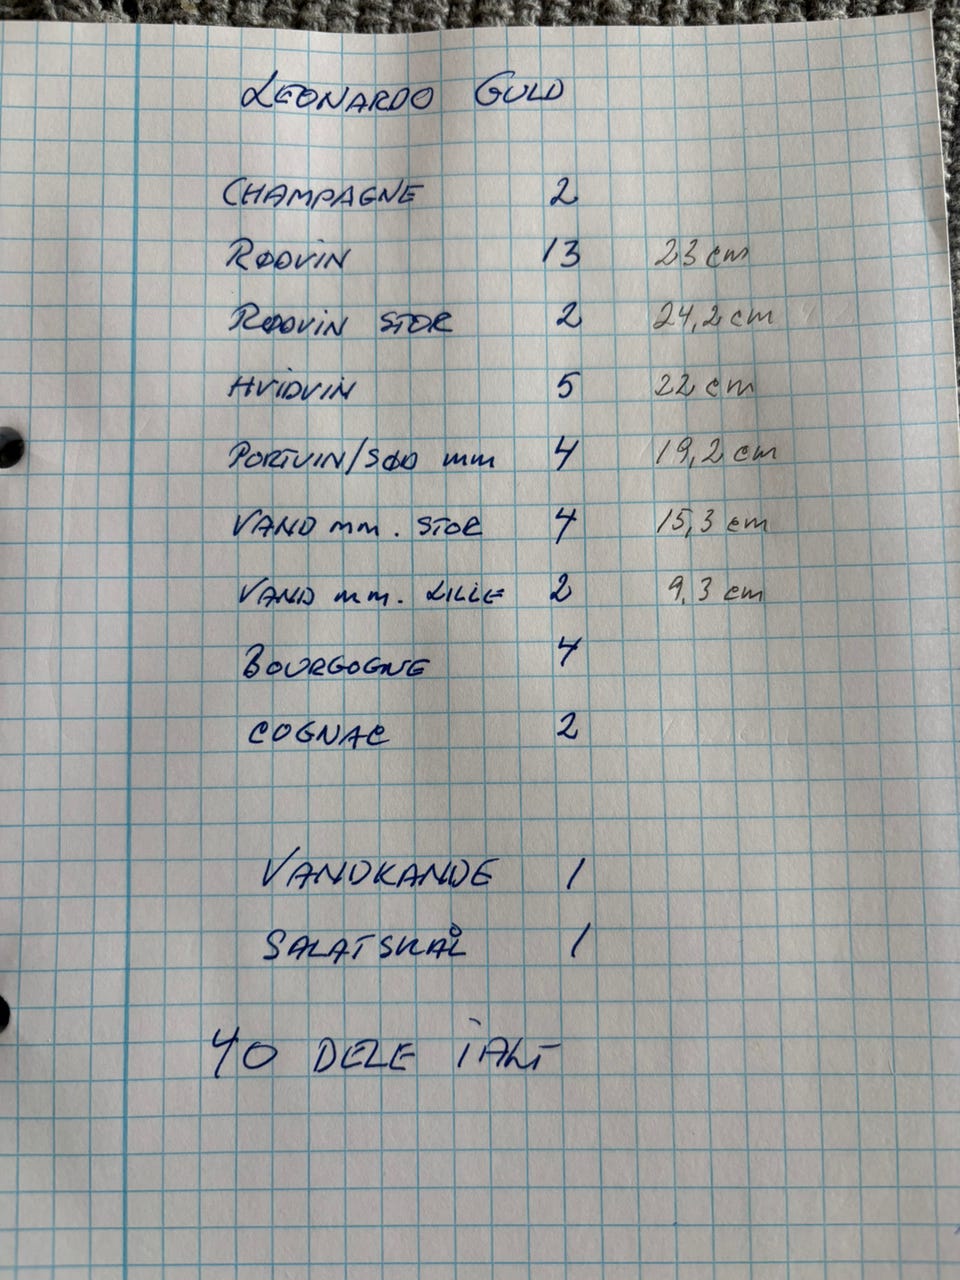 LEONARDO GULD
CHAMPAGNE 2
RØDVIN 13 23 cm
RØDVIN STOR 2 24,2 cm
HVIDVIN 5 22 cm
PORTVIN/SØD mm 4 19,2 cm
VAND mm. STOR 4 15,3 cm
VAND mm. LILLE 2 9,3 cm
BOURGOGNE 4
COGNAC 2
VANDKANDE 1
SALATSKÅL 1
40 DELE IALT